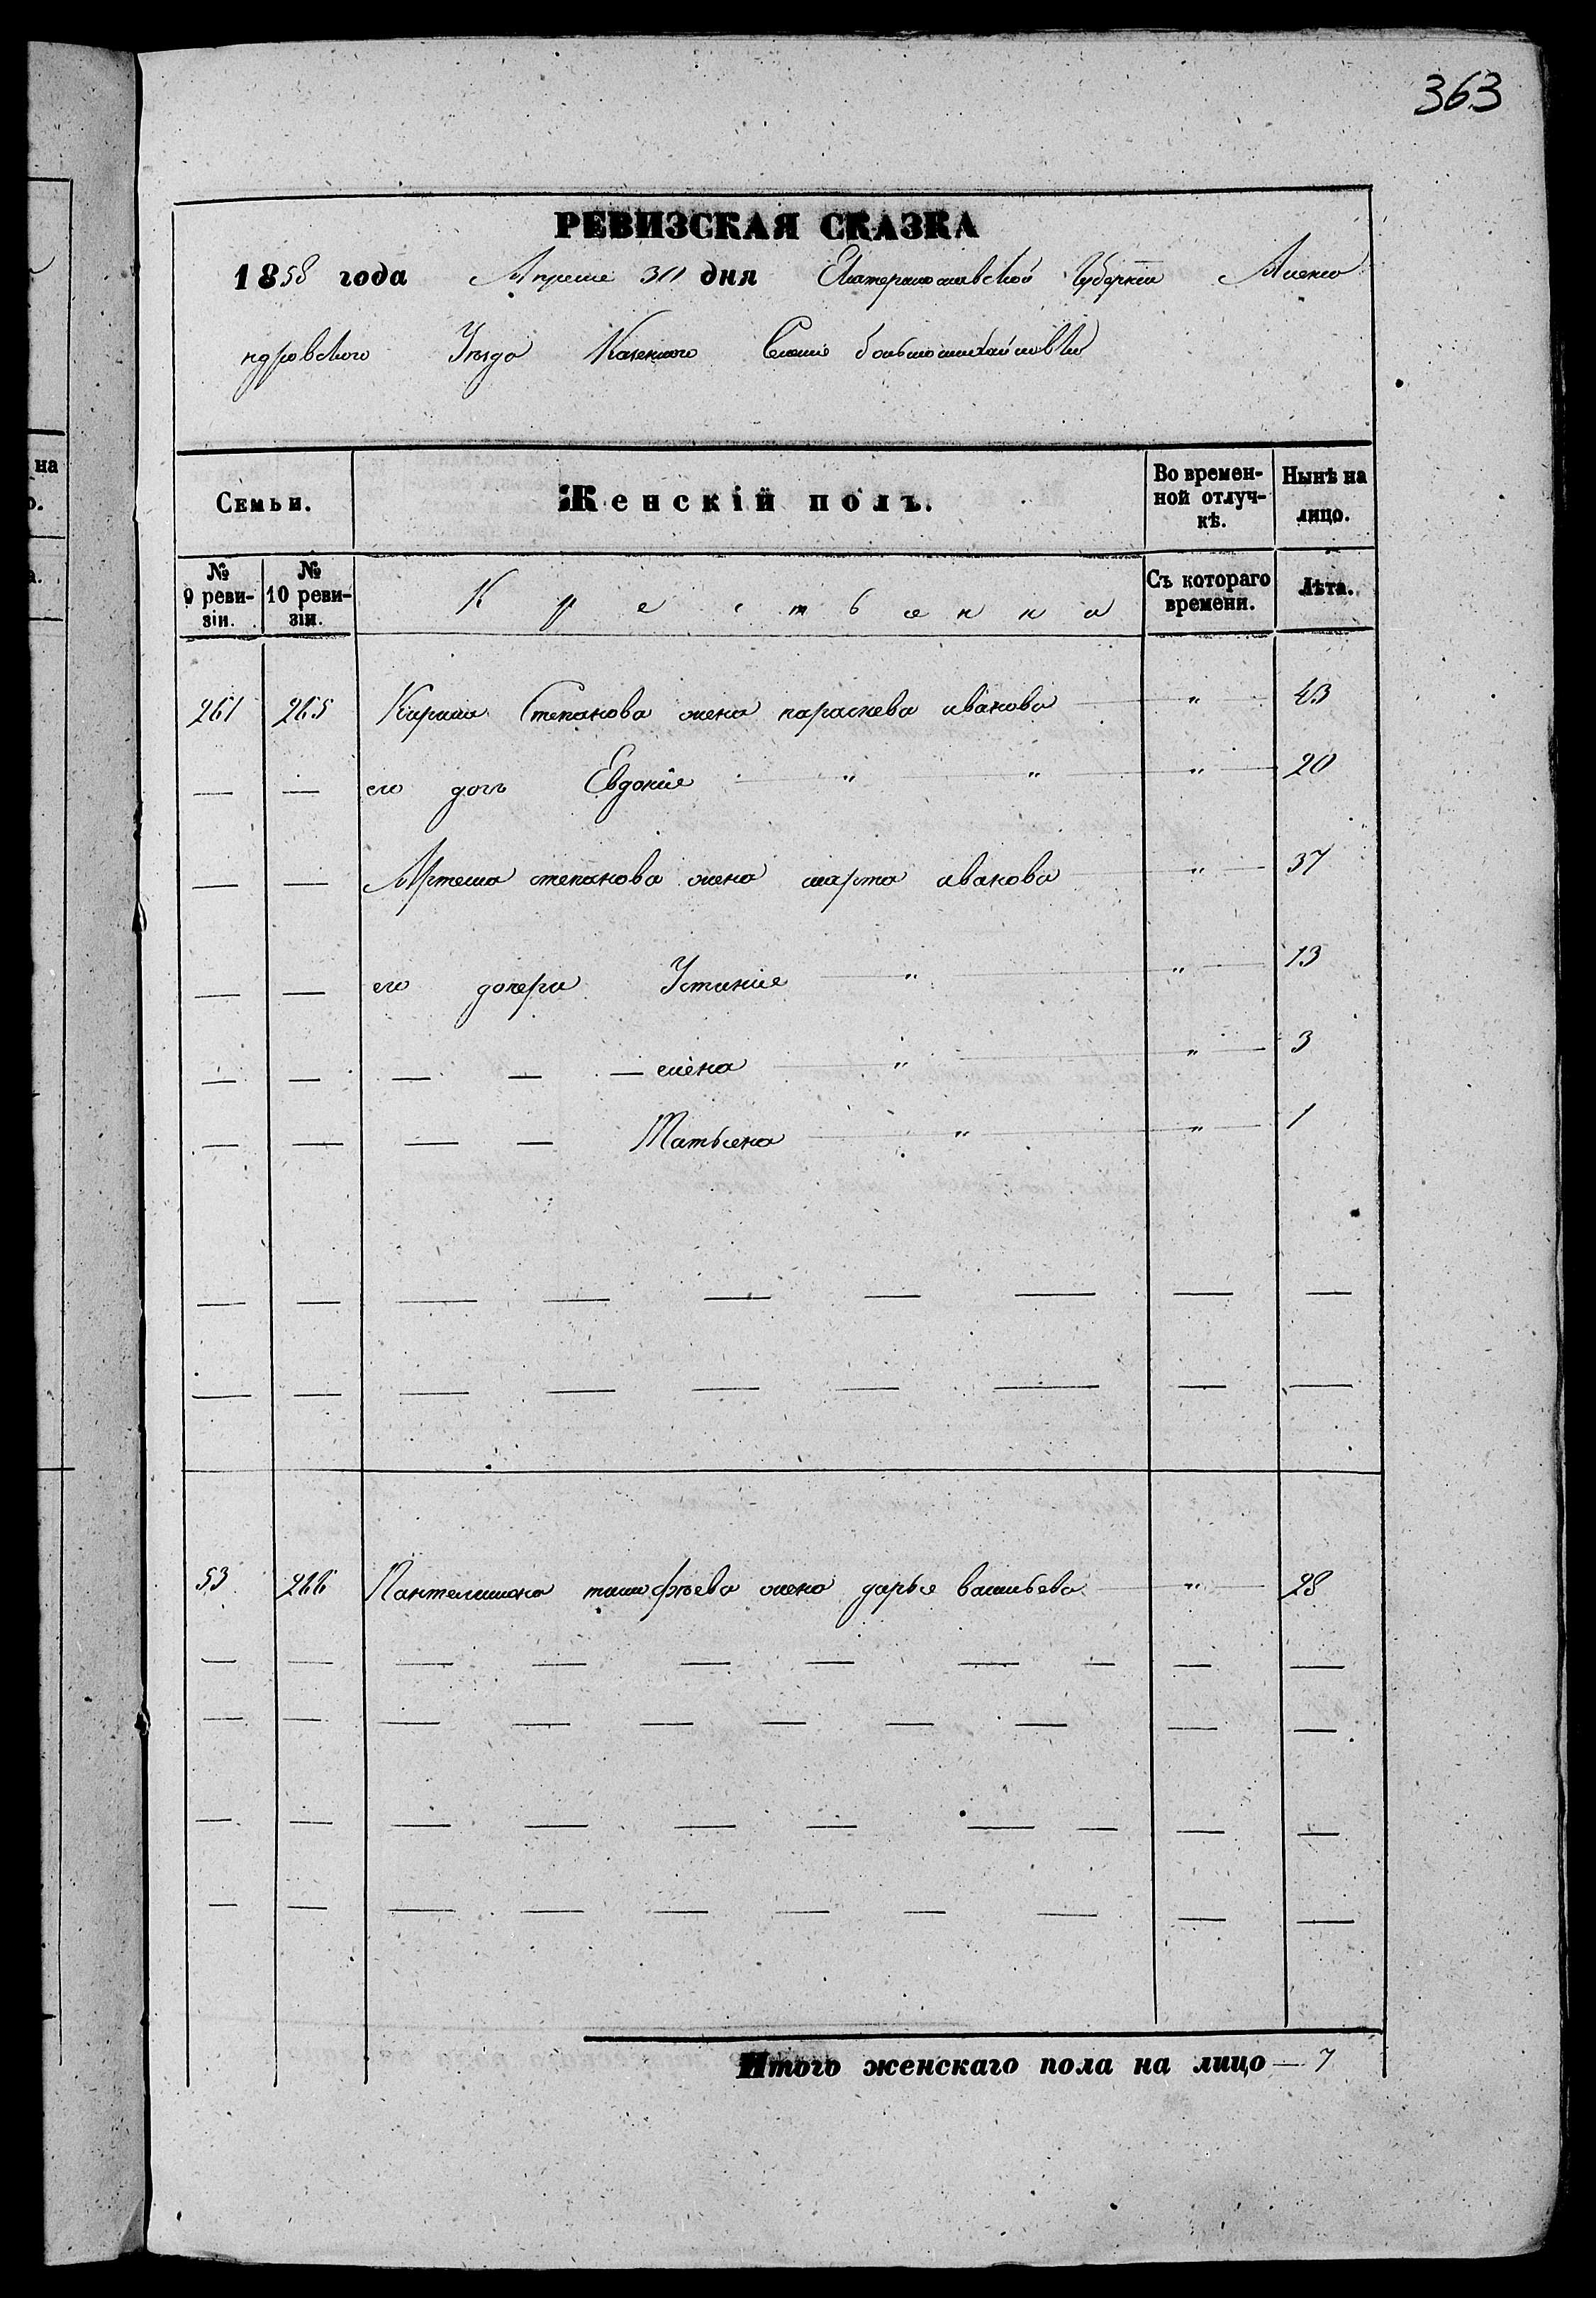 363
РЕВИЗСКАЯ СКАЗКА
1858 года Апреля 30 дня Екатеринославской Губернии Алекса
ндровского Уезда Казенного Селенія большомихайловки
Семьи. Женскій полъ. Во времен-ной отлуч-кѣ. Нынѣ на лицо.
№ 9 реви-зіи. № 10 реви-зіи. Крестьянки Съ котораго времени. Лѣта.
261 265 Кирила Степанова жена параскева иванова — " — 43
— — его дочь Евдокія — " — " — " — 20
— — Артема степанова жена марфа иванова " — 37
— — его дочери Устинія — " — " — 13
— — — — — елена — " — " — 3
— — — — Татьяна — " — " — 1
— — — — — — — — —
— — — — — — — — —
53 266 Пантелимона тимофѣева жена дарья васильева — " — 28
— — — — — — — — — —
— — — — — — — — — —
— — — — — — — — — —
— — — — — — — — — —
Итого женскаго пола на лицо — 7
на